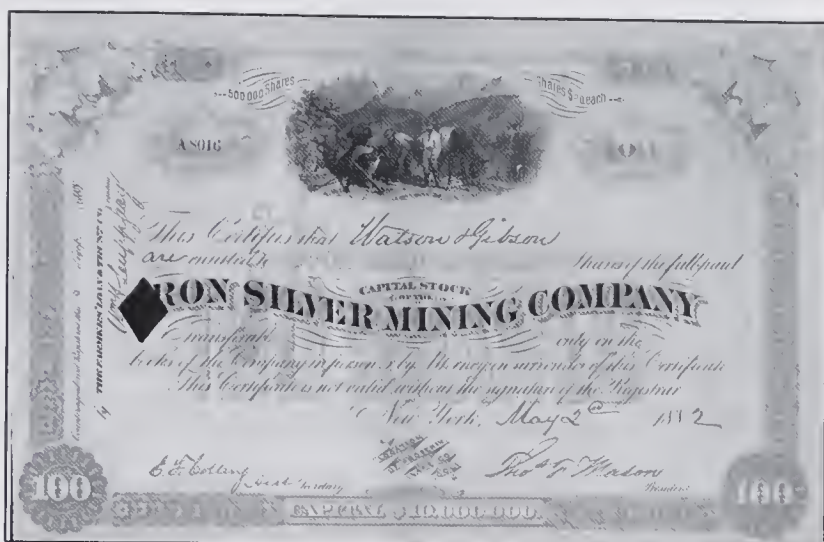 500 000 Shares
Shares $20 each
A8016
This Certifies that Watson & Gibson
are entitled to
Shares of the full paid
CAPITAL STOCK
OF THE
RON SILVER MINING COMPANY
transferable only on the
books of the Company in person or by Attorney on surrender of this Certificate
This Certificate is not valid without the signature of the Registrar
New York, May 2 1882
Asst Secretary
Thos F Mason
President
100
CAPITAL $10,000,000.
100
Countersigned and Registered this
by THE FARMERS' LOAN & TRUST CO.